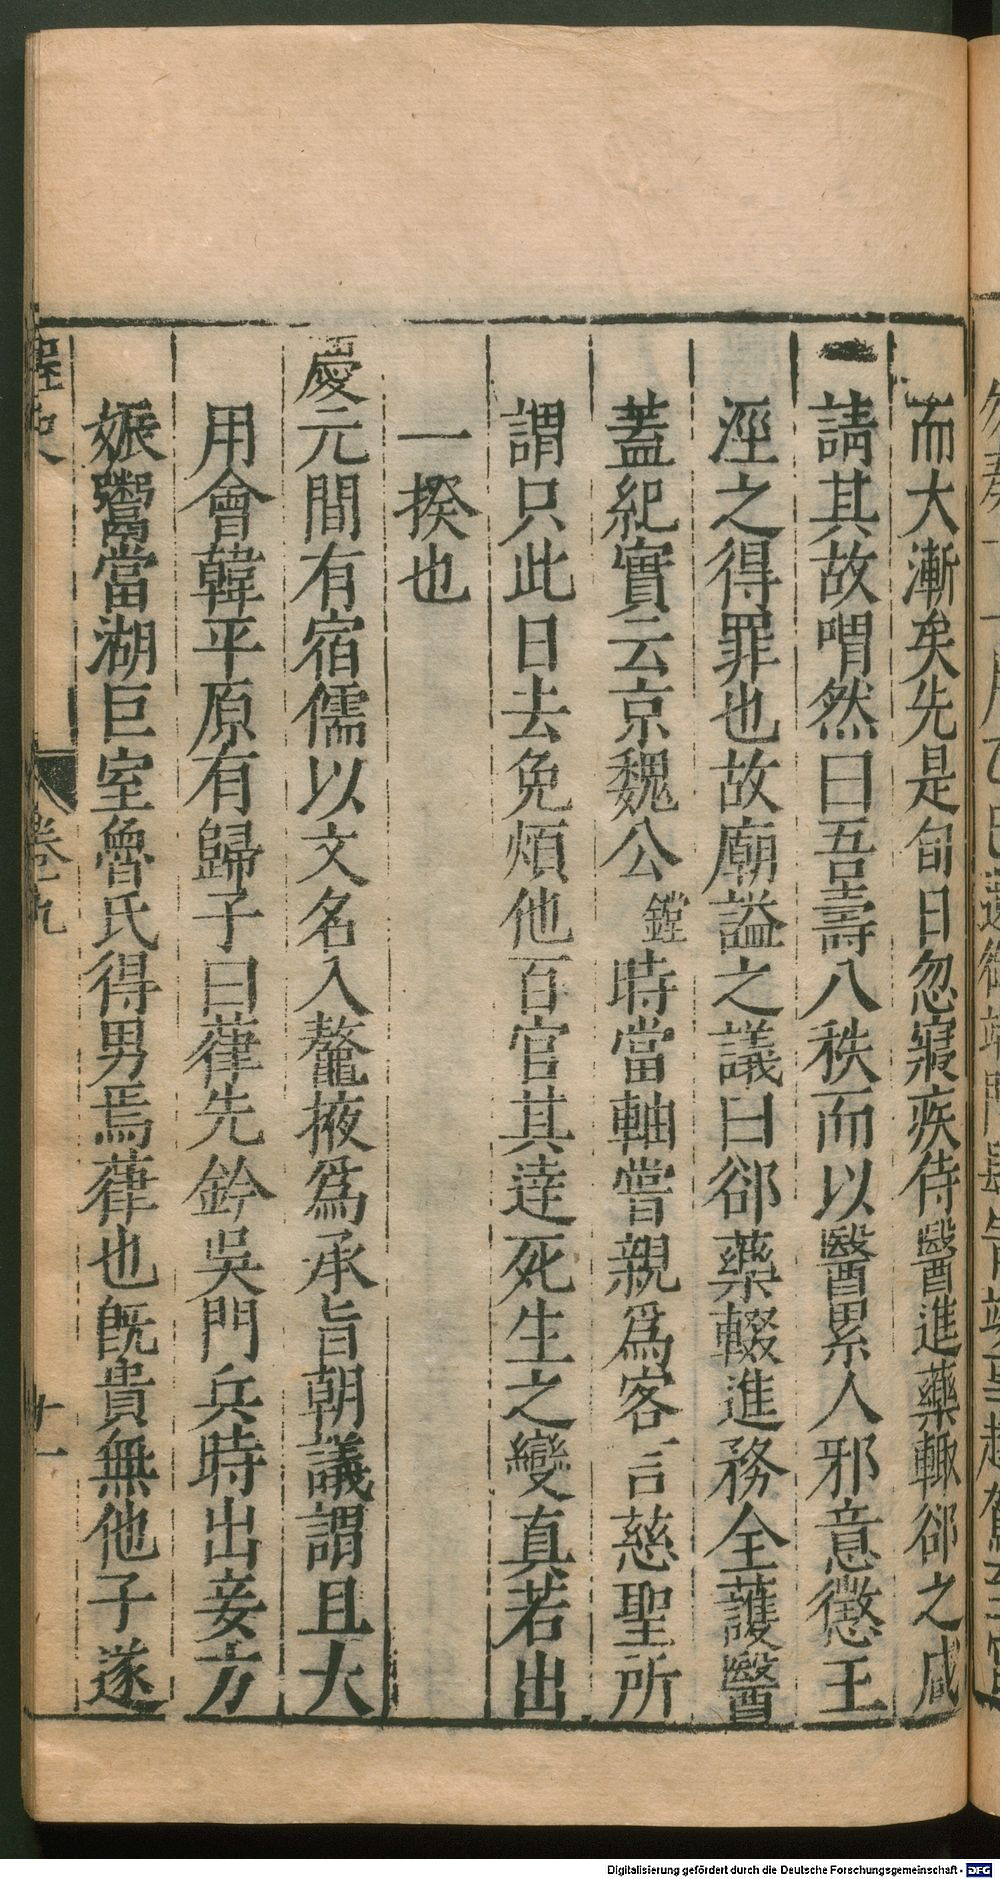 而大漸矣先是旬日忽寢疾侍醫進藥輙郤之咸
請其故喟然曰吾壽八秩而以醫累人邪意懲王
涇之得罪也故廟謚之議曰郤藥輟進務全護醫
蓋紀實云京魏公鏜時當軸嘗親爲客言慈聖所
謂只此日去免煩他百官其達死生之變真若出
一揆也
慶元間有宿儒以文名入鼇掖爲承旨朝議謂且大
用會韓平原有歸子曰葎先鈐吳門兵時出妾方
娠鬻當湖巨室魯氏得男焉葎也旣貴無他子遂
桯史
卷九
十一
Digitalisierung gefördert durch die Deutsche Forschungsgemeinschaft - DFG